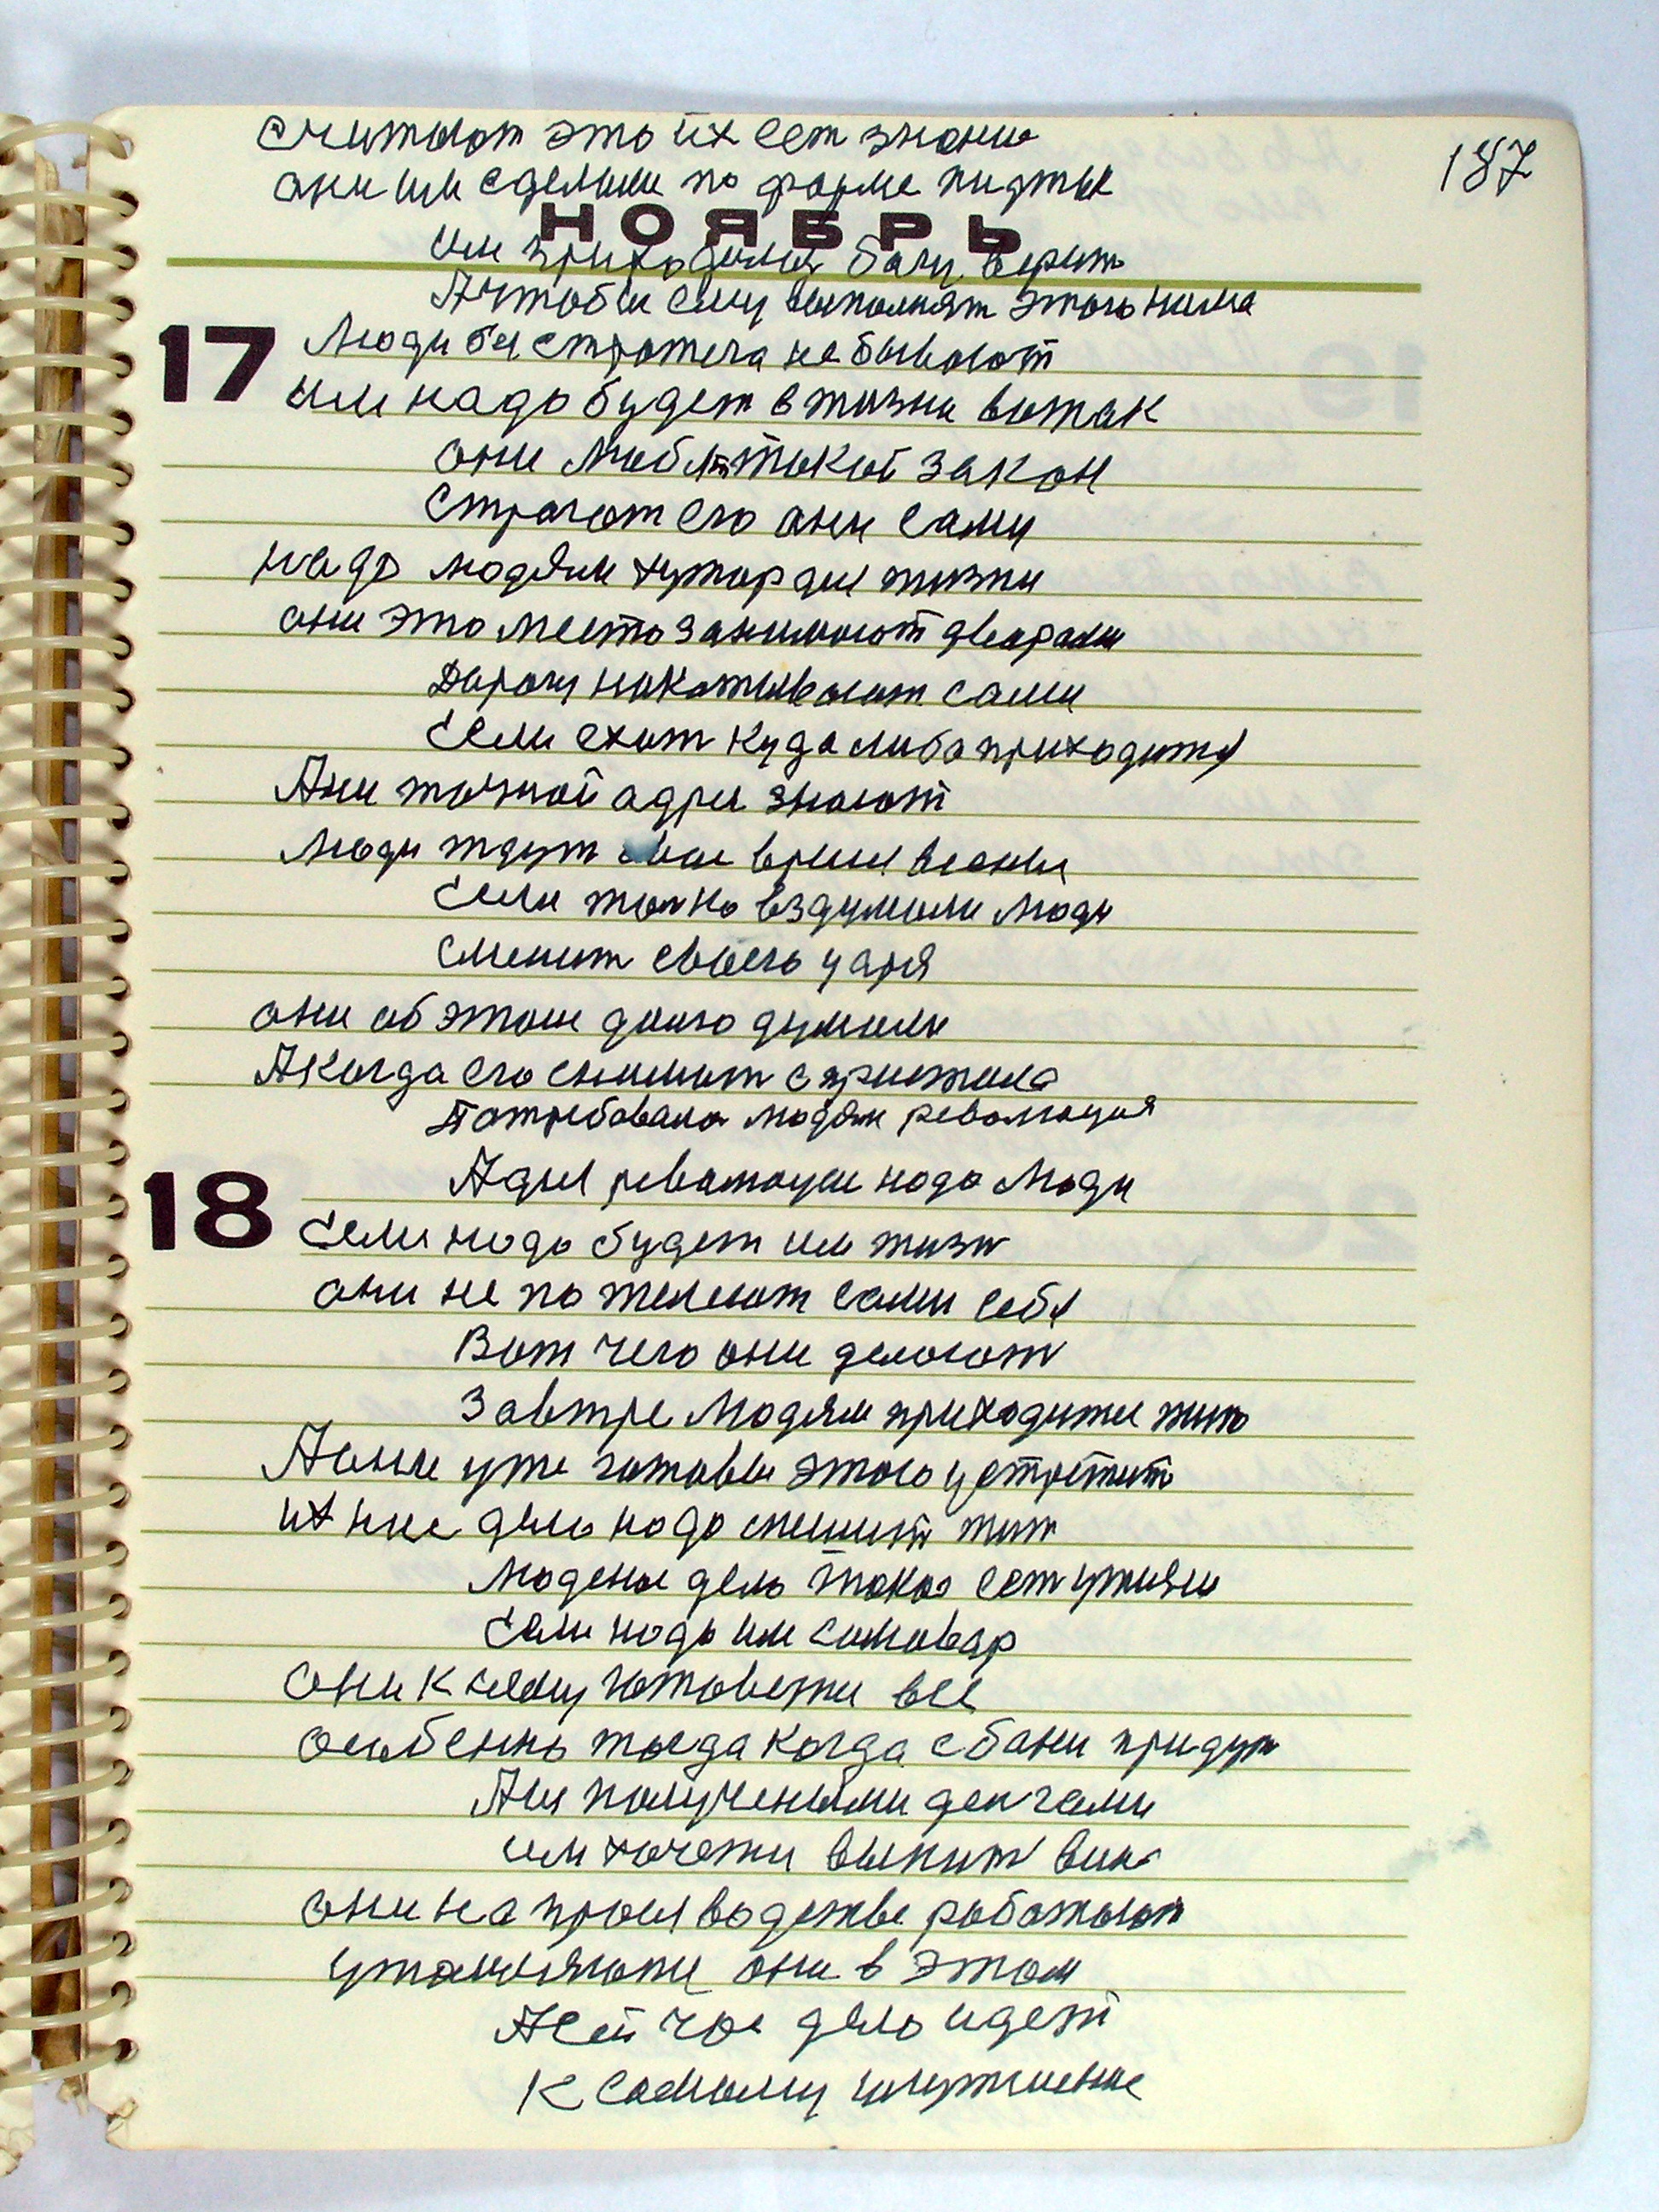 187
считают это их ест знание
они им сделали по форме пиджак
НОЯБРЬ
им приходился богу верить
А чтобы ему выполнят этого нима
17
Люди бы стратега не бывают
им надо будет в жизни вот так
они любят такой закон
строгат его они сами
надо людям хутор для жизни
они это место занимают дворами
Дорогу накатывают сами
Если ехат куда либо приходится
Они точной адрес знают
люди ждут свое время весны
Если только вздумали люди
сменит своего царя
они об этом долго думали
А когда его снимат с престола
Потребовала людям революция
18
А для революции надо люди
Если надо будет им жизн
они не пожелеют сами себя
Вот чего они делают
Завтре людям приходится жит
А они уже готовы этого устретит
их ние дело надо спешит жит
людские дело такое ест у жизни
Если надо им самовар
они к нему готовятся все
особенно тогда когда с бани придут
А с полученыыми денгами
им хочется выпит вина
они на производстве работают
утомляются они в этом
А сейчас дело идет
к самому